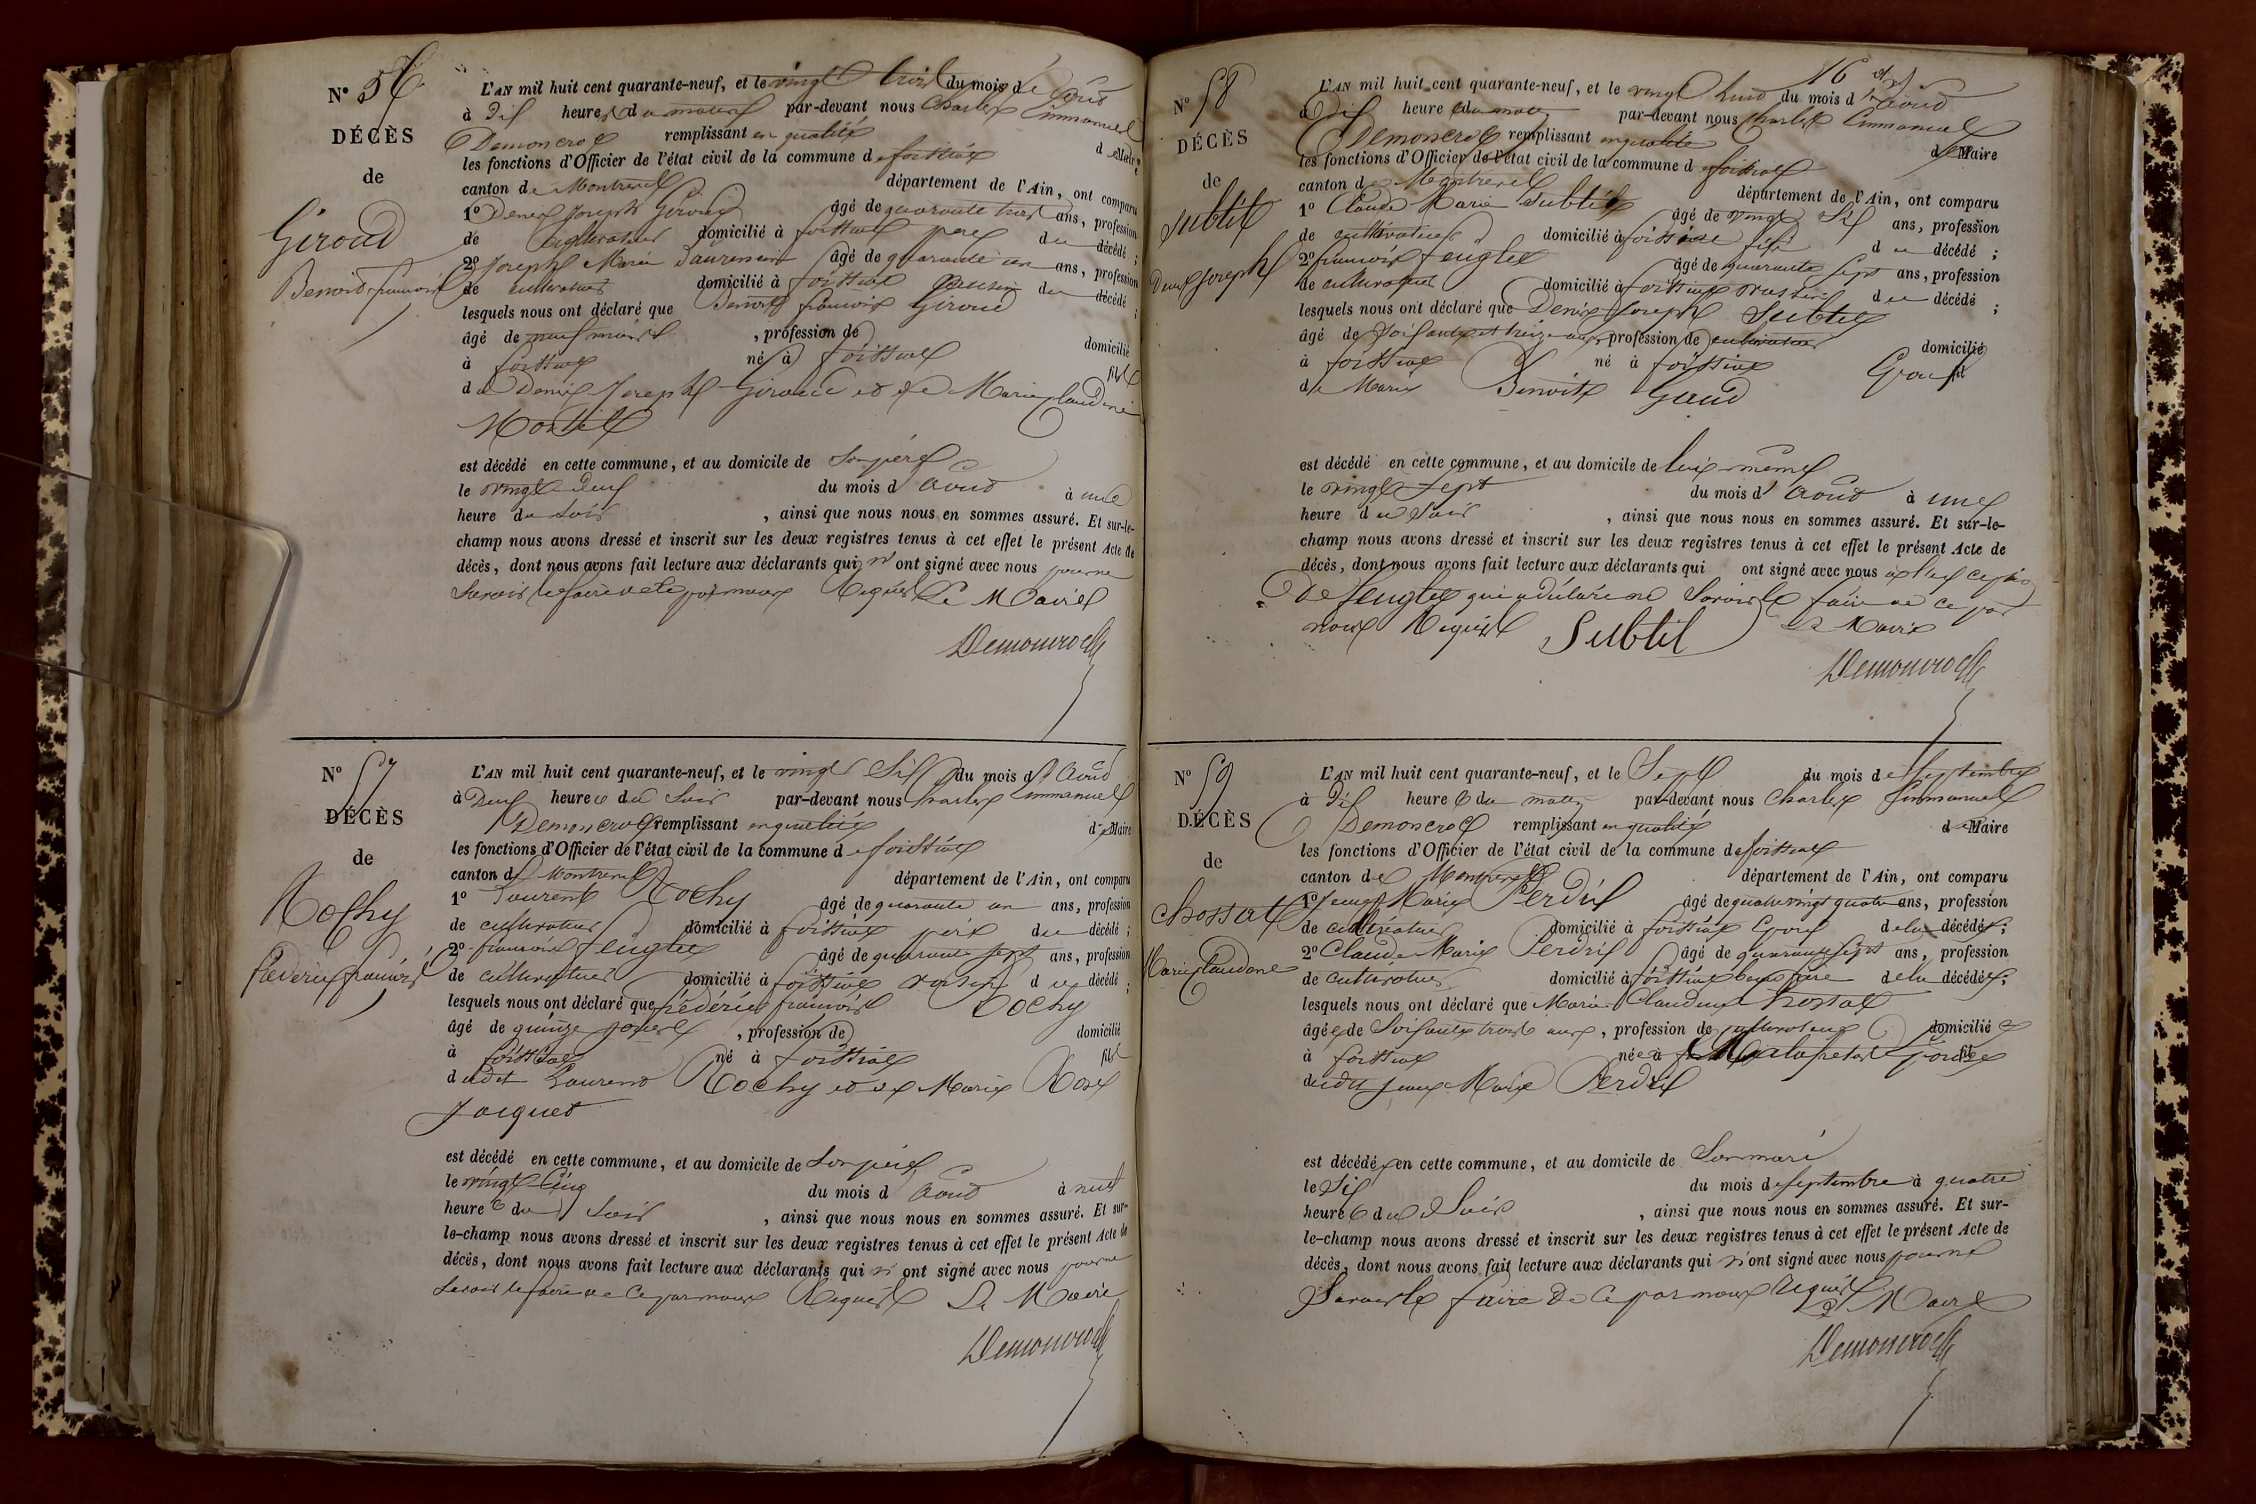 N° 56
DÉCÈS
de
Giroud
Benoit françois
L'AN mil huit cent quarante-neuf, et le vingt trois du mois d'Août
à dix heures du matin par-devant nous Charles Emmanuel
Demoncroc remplissant en qualité de Maire
les fonctions d'Officier de l'état civil de la commune de foissiat
canton de Montrevel département de l'Ain, ont comparu
1° Denis Joseph Giroud âgé de quarante trois ans, profession
de cultivateur domicilié à foissiat père du décédé ;
2° Joseph Marie Laurencin âgé de quarante un ans, profession
de cultivateur domicilié à foissiat du décédé ;
lesquels nous ont déclaré que Benoit françois Giroud
âgé de neuf mois , profession de domicilié
à foissiat né à foissiat fils
de Denis Joseph Giroud et de Marie Claudine
est décédé en cette commune, et au domicile de son père
le vingt deux du mois d'Août à une
heure du soir , ainsi que nous nous en sommes assuré. Et sur-le-
champ nous avons dressé et inscrit sur les deux registres tenus à cet effet le présent Acte de
décès, dont nous avons fait lecture aux déclarants qui n'ont signé avec nous pour ne
savoir le faire de ce par nous Requis Le Maire
Demoncroc
N° 57
DÉCÈS
de
Rochy
fréderic françois
L'AN mil huit cent quarante-neuf, et le vingt Six du mois d'Août
à Deux heures du Soir par-devant nous Charles Emmanuel
Demoncroc remplissant en qualité de Maire
les fonctions d'Officier de l'état civil de la commune de foissiat
canton de Montrevel département de l'Ain, ont comparu
1° Laurent Rochy âgé de quarante un ans, profession
de cultivateur domicilié à foissiat père du décédé ;
2° françois feugles âgé de quarante sept ans, profession
de cultivateur domicilié à foissiat voisin du décédé ;
lesquels nous ont déclaré que fréderic françois Rochy
âgé de quinze jours , profession de domicilié
à foissiat né à foissiat fils
dudit Laurent Rochy et de Marie Rose
Jacquet
est décédé en cette commune, et au domicile de son père
le vingt Cinq du mois d'Août à neuf
heures du Soir , ainsi que nous nous en sommes assuré. Et sur-
le-champ nous avons dressé et inscrit sur les deux registres tenus à cet effet le présent Acte de
décès, dont nous avons fait lecture aux déclarants qui n'ont signé avec nous pour ne
savoir le faire de ce par nous Requis Le Maire
Demoncroc
N° 58
DÉCÈS
de
Subtil
Denis Joseph
L'AN mil huit cent quarante-neuf, et le vingt huit du mois d'Août
à Dix heures du matin par-devant nous Charles Emmanuel
Demoncroc remplissant en qualité de Maire
les fonctions d'Officier de l'état civil de la commune de foissiat
canton de Montrevel département de l'Ain, ont comparu
1° Claude Marie Subtil âgé de vingt Six ans, profession
de cultivateur domicilié à foissiat fils du décédé ;
2° françois feugles âgé de quarante sept ans, profession
de cultivateur domicilié à foissiat voisin du décédé ;
lesquels nous ont déclaré que Denis Joseph Subtil
âgé de soixante et treize ans, profession de cultivateur domicilié
à foissiat né à foissiat Epoux
de Marie Benoite Gaud
est décédé en cette commune, et au domicile de lui même
le vingt sept du mois d'Août à une
heure du Soir , ainsi que nous nous en sommes assuré. Et sur-le-
champ nous avons dressé et inscrit sur les deux registres tenus à cet effet le présent Acte de
décès, dont nous avons fait lecture aux déclarants qui ont signé avec nous à l'exception
De feugles qui a déclaré ne savoir le faire de ce par
nous Requis Le Maire
Subtil
Demoncroc
N° 59
DÉCÈS
de
Chossat
Marie Claudine
L'AN mil huit cent quarante-neuf, et le Sept du mois de Septembre
à Dix heures du matin par-devant nous Charles Emmanuel
Demoncroc remplissant en qualité de Maire
les fonctions d'Officier de l'état civil de la commune de foissiat
canton de Montrevel département de l'Ain, ont comparu
1° Jean Marie Perdrix âgé de quatre vingt quatre ans, profession
de cultivateur domicilié à foissiat Epoux de la décédée ;
2° Claude Marie Perdrix âgé de quarante Sept ans, profession
de cultivateur domicilié à foissiat beau frère de la décédée ;
lesquels nous ont déclaré que Marie Claudine Chossat
âgée de Soixante trois ans , profession de cultivateur domiciliée
à foissiat née à Malafretaz Epouse
dudit Jean Marie Perdrix
est décédée en cette commune, et au domicile de Son mari
le Six du mois de Septembre à quatre
heures du Soir , ainsi que nous nous en sommes assuré. Et sur-
le-champ nous avons dressé et inscrit sur les deux registres tenus à cet effet le présent Acte de
décès, dont nous avons fait lecture aux déclarants qui n'ont signé avec nous pour ne
Savoir le faire De Ce par nous Requis Le Maire
Demoncroc